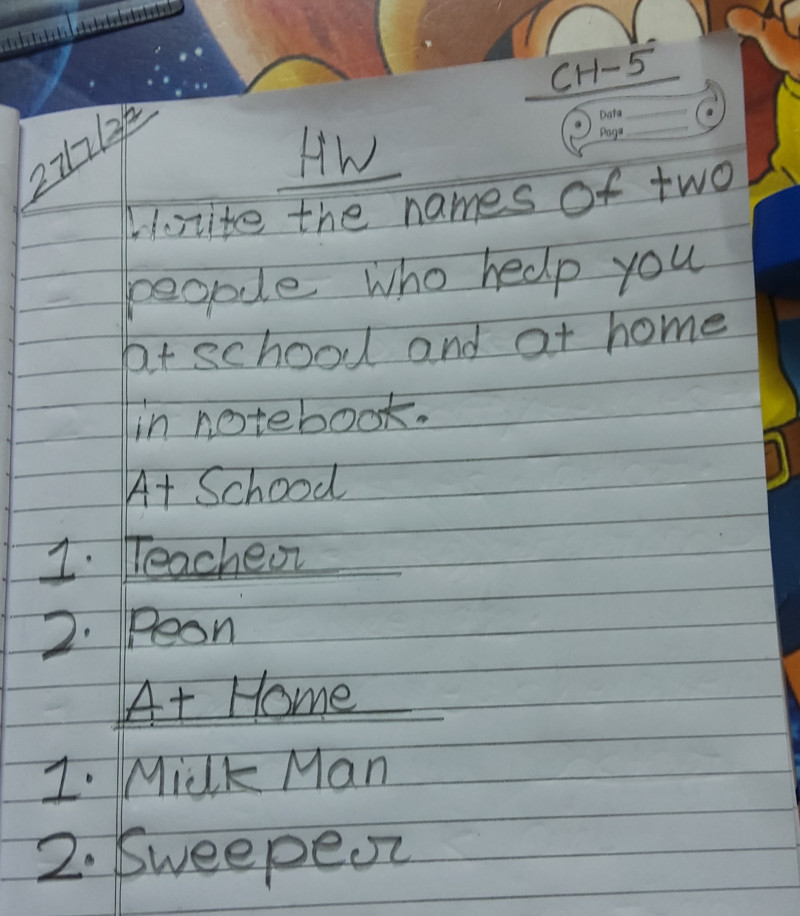 CH-5
Data
Page
27/7/22
HW
Write the names of two
people who help you
at school and at home
in notebook.
At School
1. Teacher
2. Peon
At Home
1. Milk Man
2. Sweeper